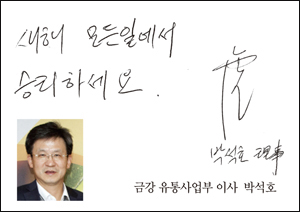 새해 모든일에서
승리하세요.
虎
박석호 理事
금강 유통사업부 이사 박석호